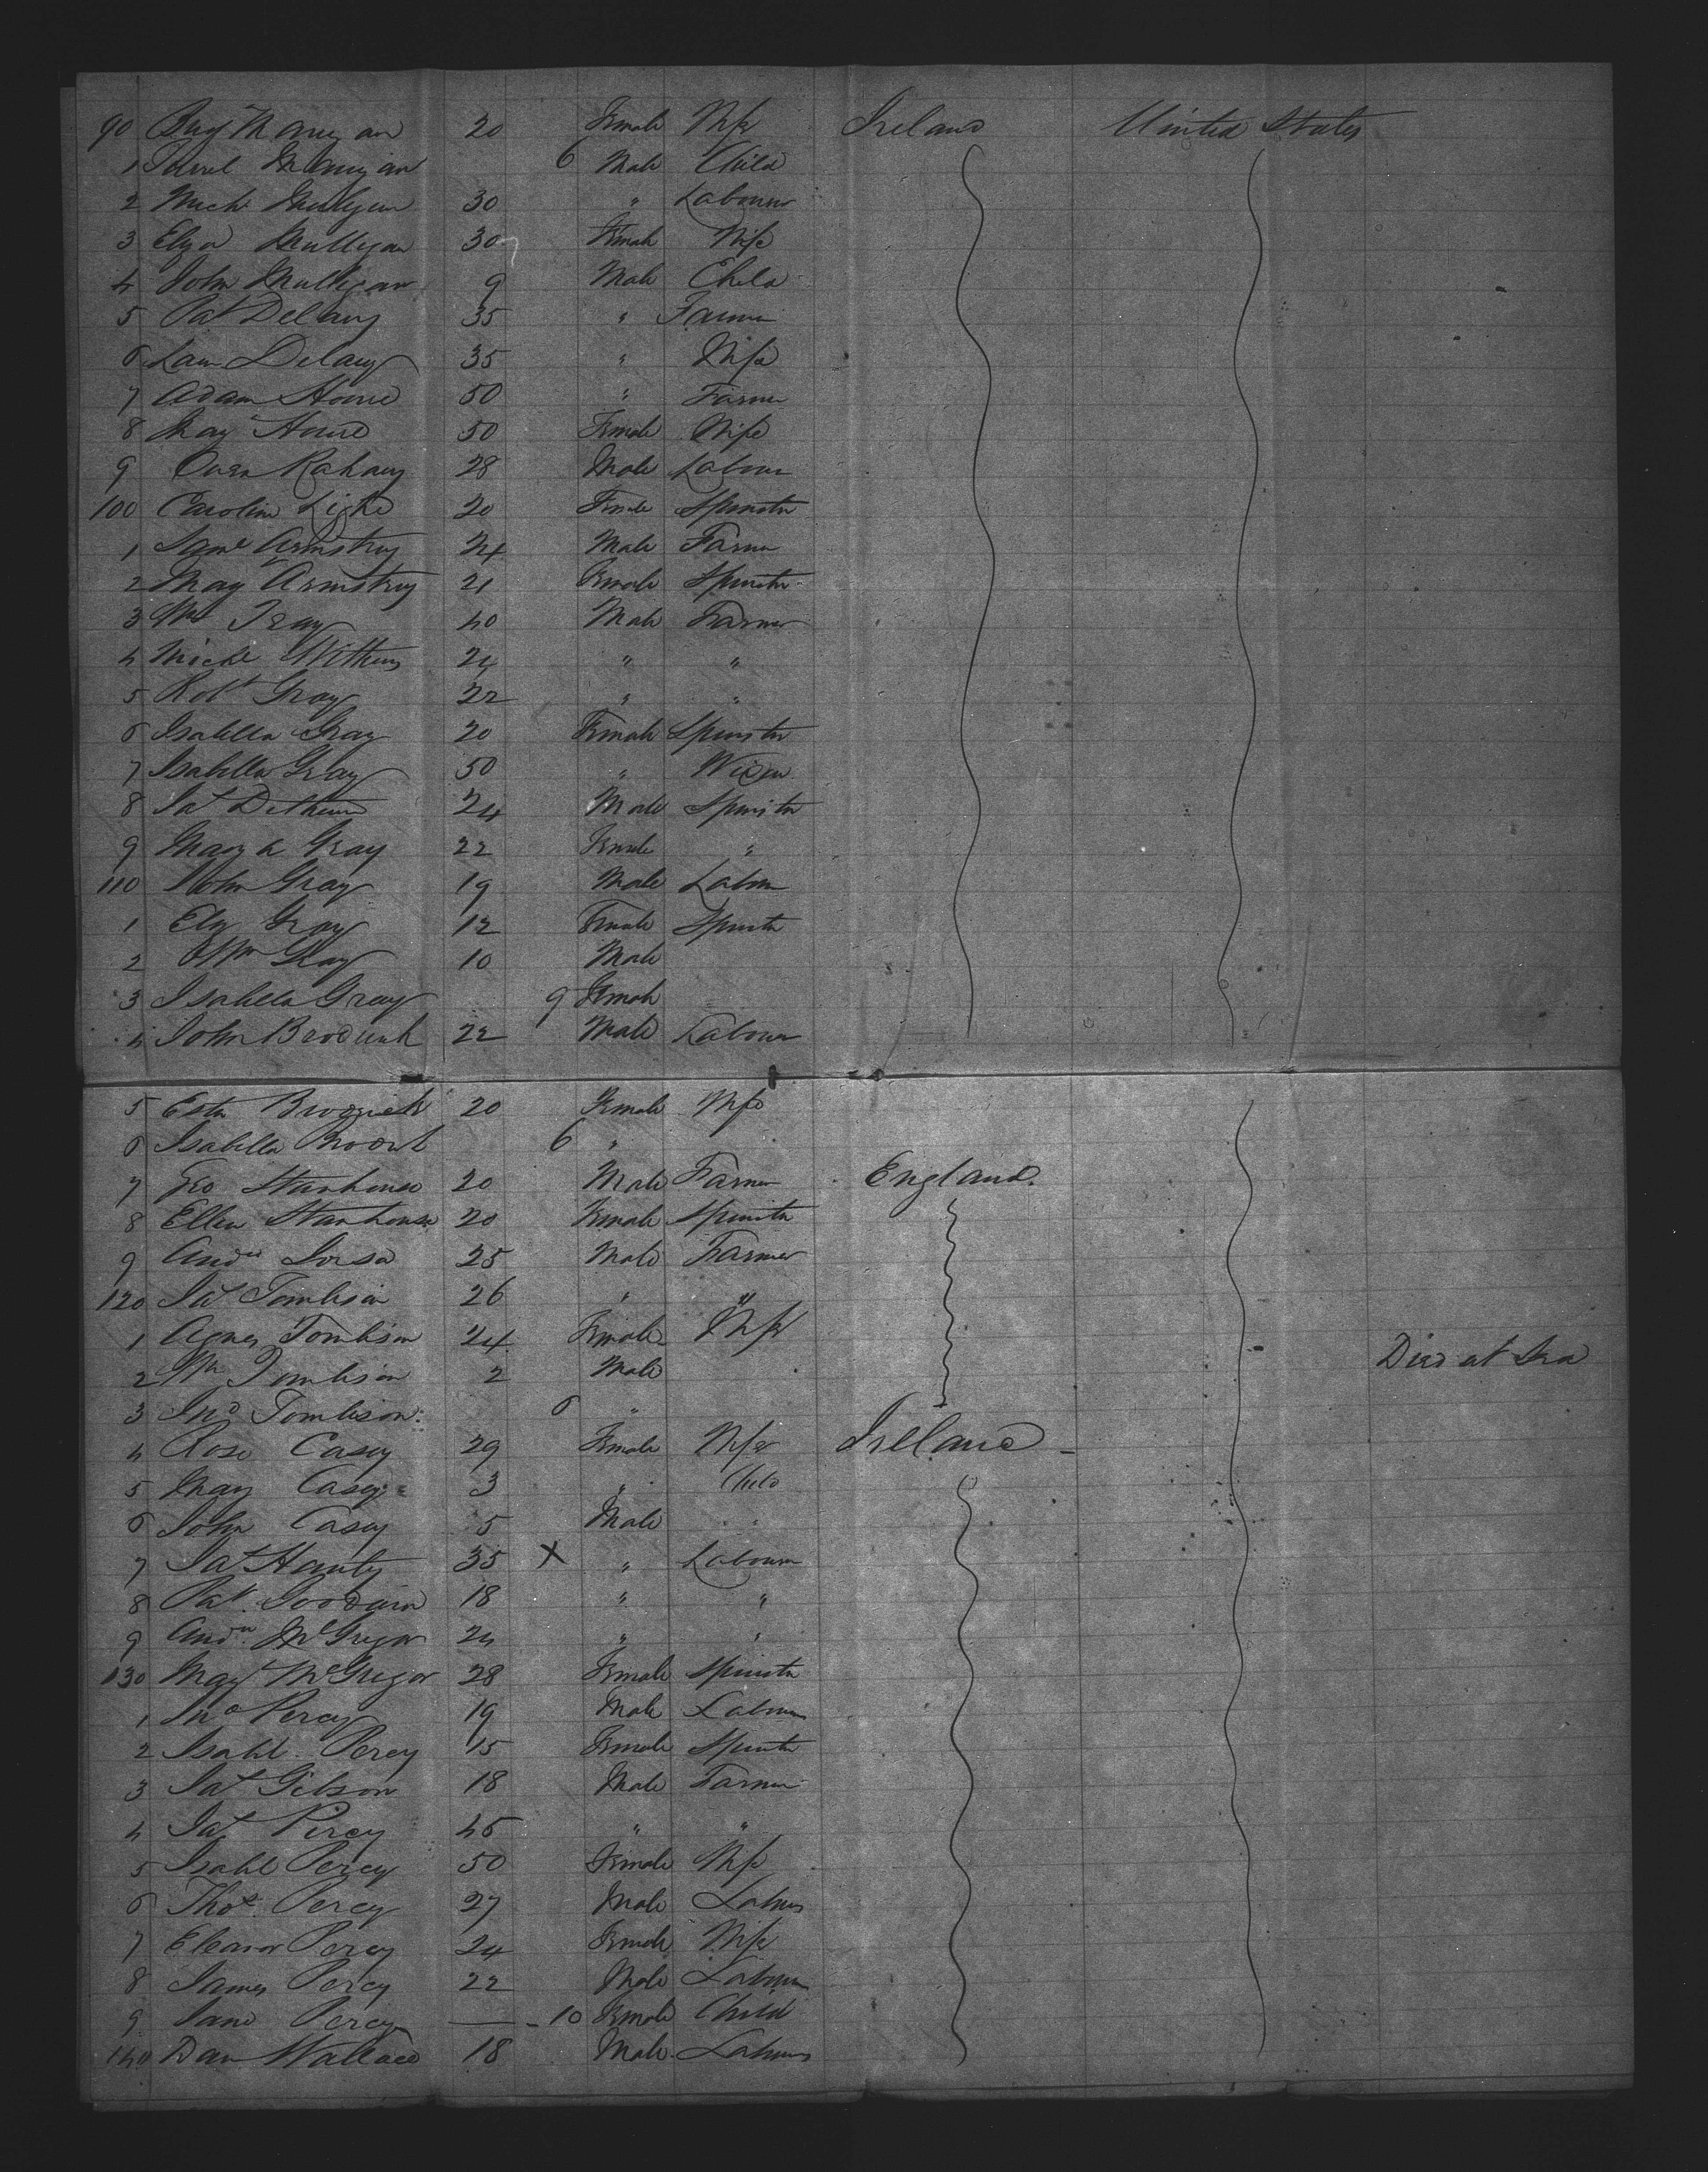 90 20 Female Wife Ireland United States
1 6 Male Child
2 Mich Mulligan 30 " Labourer
3 Eliza Mulligan 30 Female Wife
4 John Mulligan 9 Male Child
5 Pat Delany 35 " Farmer
6 Delany 35 " Wife
7 Adam 50 " Farmer
8 May 50 Female Wife
9 Owen 28 Male Labour
100 Caroline 20 Female Spinster
1 Armstrong 24 Male Farmer
2 May Armstrong 21 Female Spinster
3 Wm 40 Male Farmer
4 24 " "
5 Robt Gray 22 " "
6 Isabella Gray 20 Female Spinster
7 Isabella Gray 50 " Widow
8 Jas 24 Male Spinster
9 Mary A Gray 22 Female "
110 John Gray 19 Male Labour
1 Elz Gray 12 Female Spinster
2 Wm Gray 10 Male
3 Isabella Gray 9 Female
4 John Broderick 22 Male Labourer
5 Esth Broderick 20 Female Wife
6 Isabella 6 "
7 Geo Stanhouse 20 Male Farmer England.
8 Ellen Stanhouse 20 Female Spinster
9 Andw 25 Male Farmer
120 Jas Tomlison 26 " "
1 Agnes Tomlison 24 Female Wife
2 Wm Tomlison 2 Male Died at Sea
3 Jno Tomlison 6 "
4 Rose Casey 29 Female Wife Ireland
5 May Casey 3 " Child
6 John Casey 5 Male "
7 Jas Hanty 35 X " Labourer
8 Pat. Goodwin 18 " "
9 Andw. McGregor 24 " "
130 Mag McGregor 28 Female Spinster
1 Jno Percy 19 Male Labour
2 Isabl. Percy 15 Female Spinster
3 Jas Gibson 18 Male Farmer
4 Jas Percy 45 " "
5 Isabl Percy 50 Female Wife
6 Thos. Percy 27 Male Labour
7 Eleanor Percy 24 Female Wife
8 James Percy 22 Male Labour
9 Jane Percy 10 Female Child
140 Dan Wallace 18 Male Labour